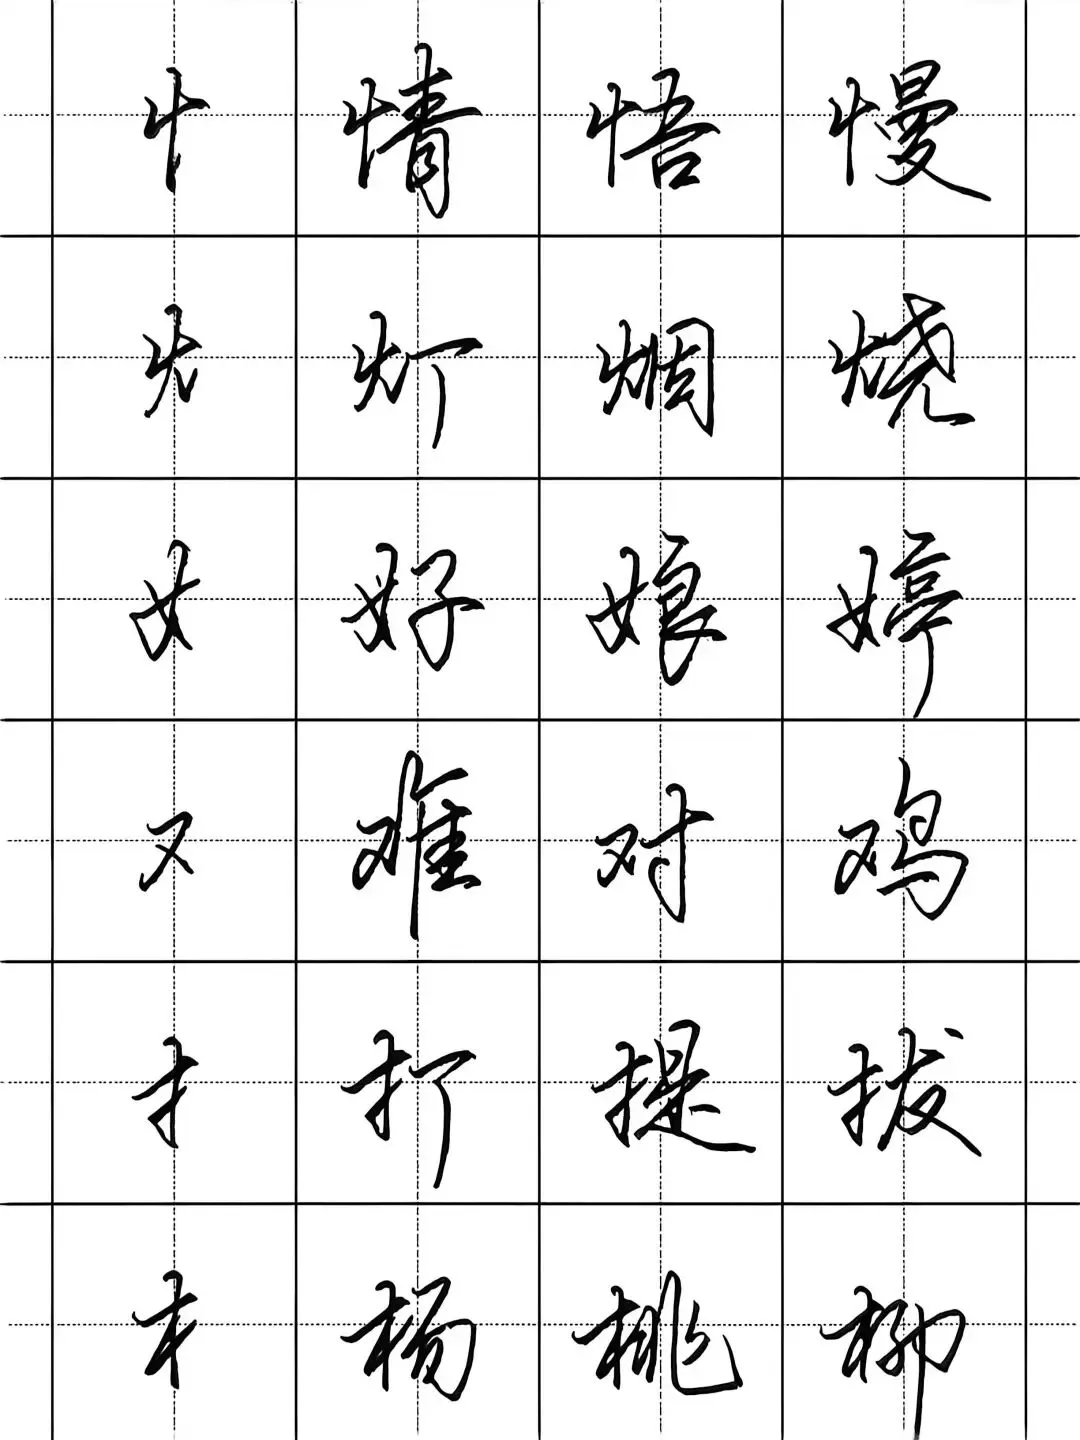 忄 情 悟 慢
火 灯 烟 烧
女 好 娘 婷
又 难 对 鸡
扌 打 提 拔
木 杨 桃 柳